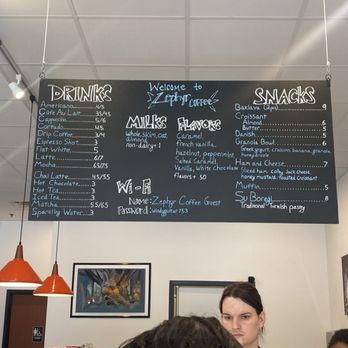 DRINKS
Americano 4/5
Cafe Au Lait 3.5/4.5
Cappuccino 5/6
Cortado 4.5
Drip Coffee 3/4
Espresso Shot 3
Flat White 5
Latte 6/7
Mocha 6.5/7.5
Chai Latte 4.5/5.5
Hot Chocolate 5
Hot Tea 3
Iced Tea 3
Matcha 5.5/6.5
Sparkling Water 3
Welcome to
Zephyr
COFFEE
MILKS
whole, skim, oat
almond
non-dairy + 1
FLAVORS
Caramel,
french vanilla,
hazelnut, peppermint
Salted Caramel,
Vanilla, white chocolate
flavors + .50
Wi-Fi
Name: Zephyr Coffee Guest
Password:
SNACKS
Baklava 9
Croissant
Almond 6
Butter 5
Danish 5
Granola Bowl 6
Greek yogurt, raisins, banana, granola,
honey drizzle
Ham and Cheese 7
Sliced ham, Colby Jack Cheese,
honey mustard, Toasted Croissant
Muffin 5
Su Boregi 8
Traditional Turkish pastry